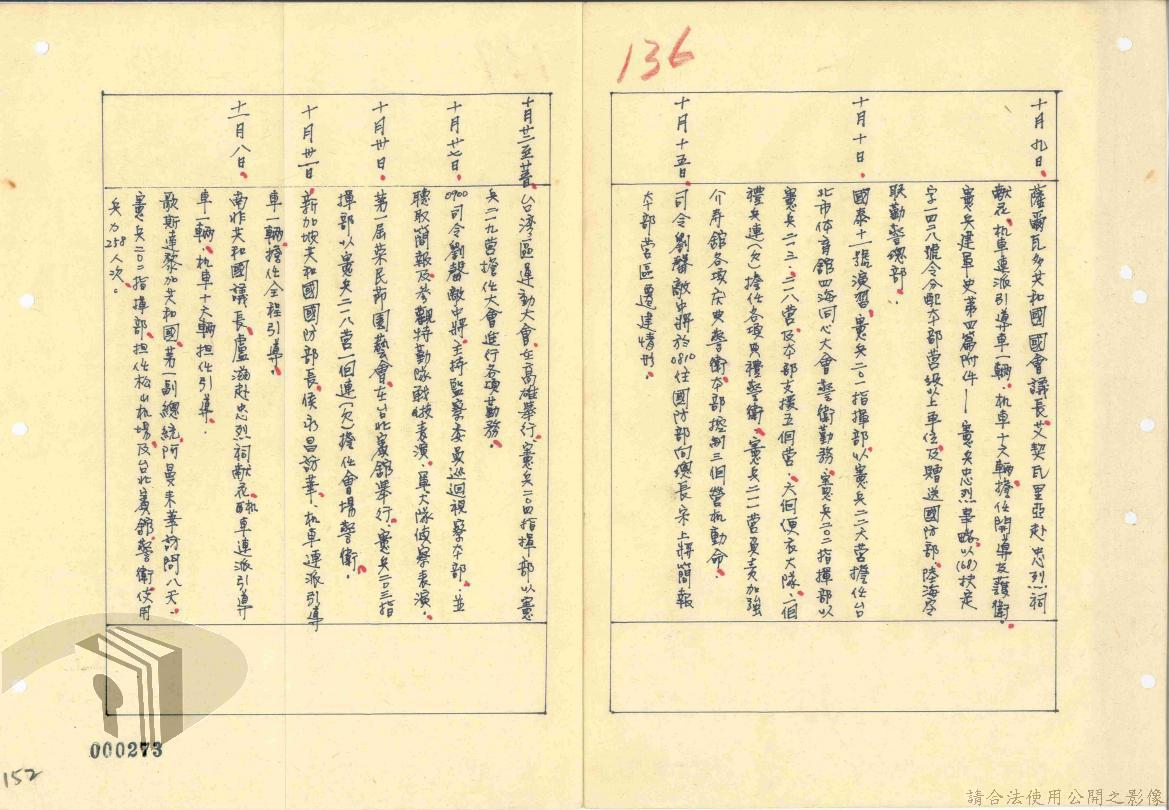 136
十月九日 薩爾瓦多共和國國會議長艾契瓦里亞赴忠烈祠
献花，机車連派引導車一輛，机車十六輛擔任開導及護衛。
憲兵建軍史第四篇附件——憲兵忠烈事略以(68)扶定
字一四二八號令分配本部營級以上單位及贈送國防部、陸海空
联勤警總部。
十月十日 國泰十一號演習，憲兵二〇一指揮部以憲兵二二六營擔任台
北市体育館四海同心大會警衛勤務，憲兵二〇二指揮部以
憲兵二一三、二一八營及本部支援五個營、六個便衣大隊、一個
禮兵連(欠)擔任各項典禮警衛，憲兵二一一營負責加強
介寿館各項庆典警衛，本部控制三個營机動命。
十月十五日 司令劉磬敵中將於0810住國防部向總長宋上將簡報
本部營區遷建情形。
十月廿二至 台湾區運動大會，在高雄舉行，憲兵二〇四指揮部以憲
兵二一九營擔任大會進行各項勤務。
十月廿七日 0900司令劉磬敵中將，主持監察委員巡迴視察本部，並
聽取簡報及參觀特勤隊戰技表演，單大隊偵察表演。
十月卅日 第一屆榮民節園藝會，在台北賓館舉行，憲兵二〇三指
揮部以憲兵二一八營一個連(欠)擔任會場警衛。
十月卅一日 新加坡共和國國防部長，侯永昌訪華，机車連派引導
車一輛擔任全程引導。
十一月八日 南非共和國議長盧瀚赴忠烈祠献花，机車連派引導
車一輛，机車十六輛担任引導。
歌斯達黎加共和國，第一副總統阿曼來華訪問八天，
憲兵二〇二指揮部，担任松山机場及台北賓館警衛，使用
兵力258人次。
000273
152
請合法使用公開之影像